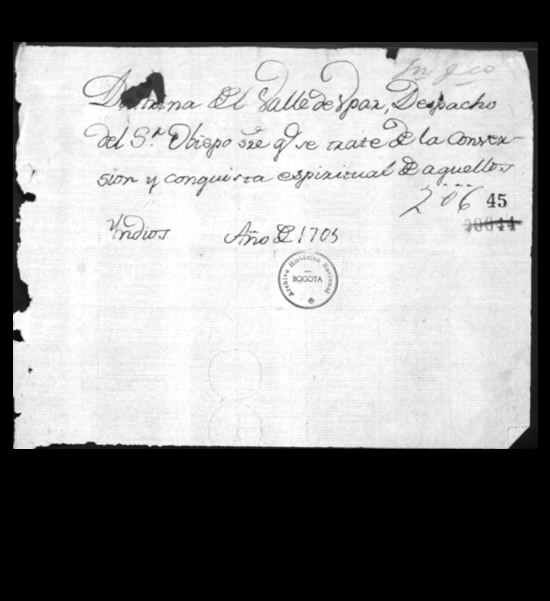 Doctrina del Valle de Vpar, Despacho
del S.r Obispo sre q̃ se trate de la Conver-
sion y conquista espiritual de aquellos
206 45
Yndios Año de 1705
Archivo Histórico Nacional
BOGOTA